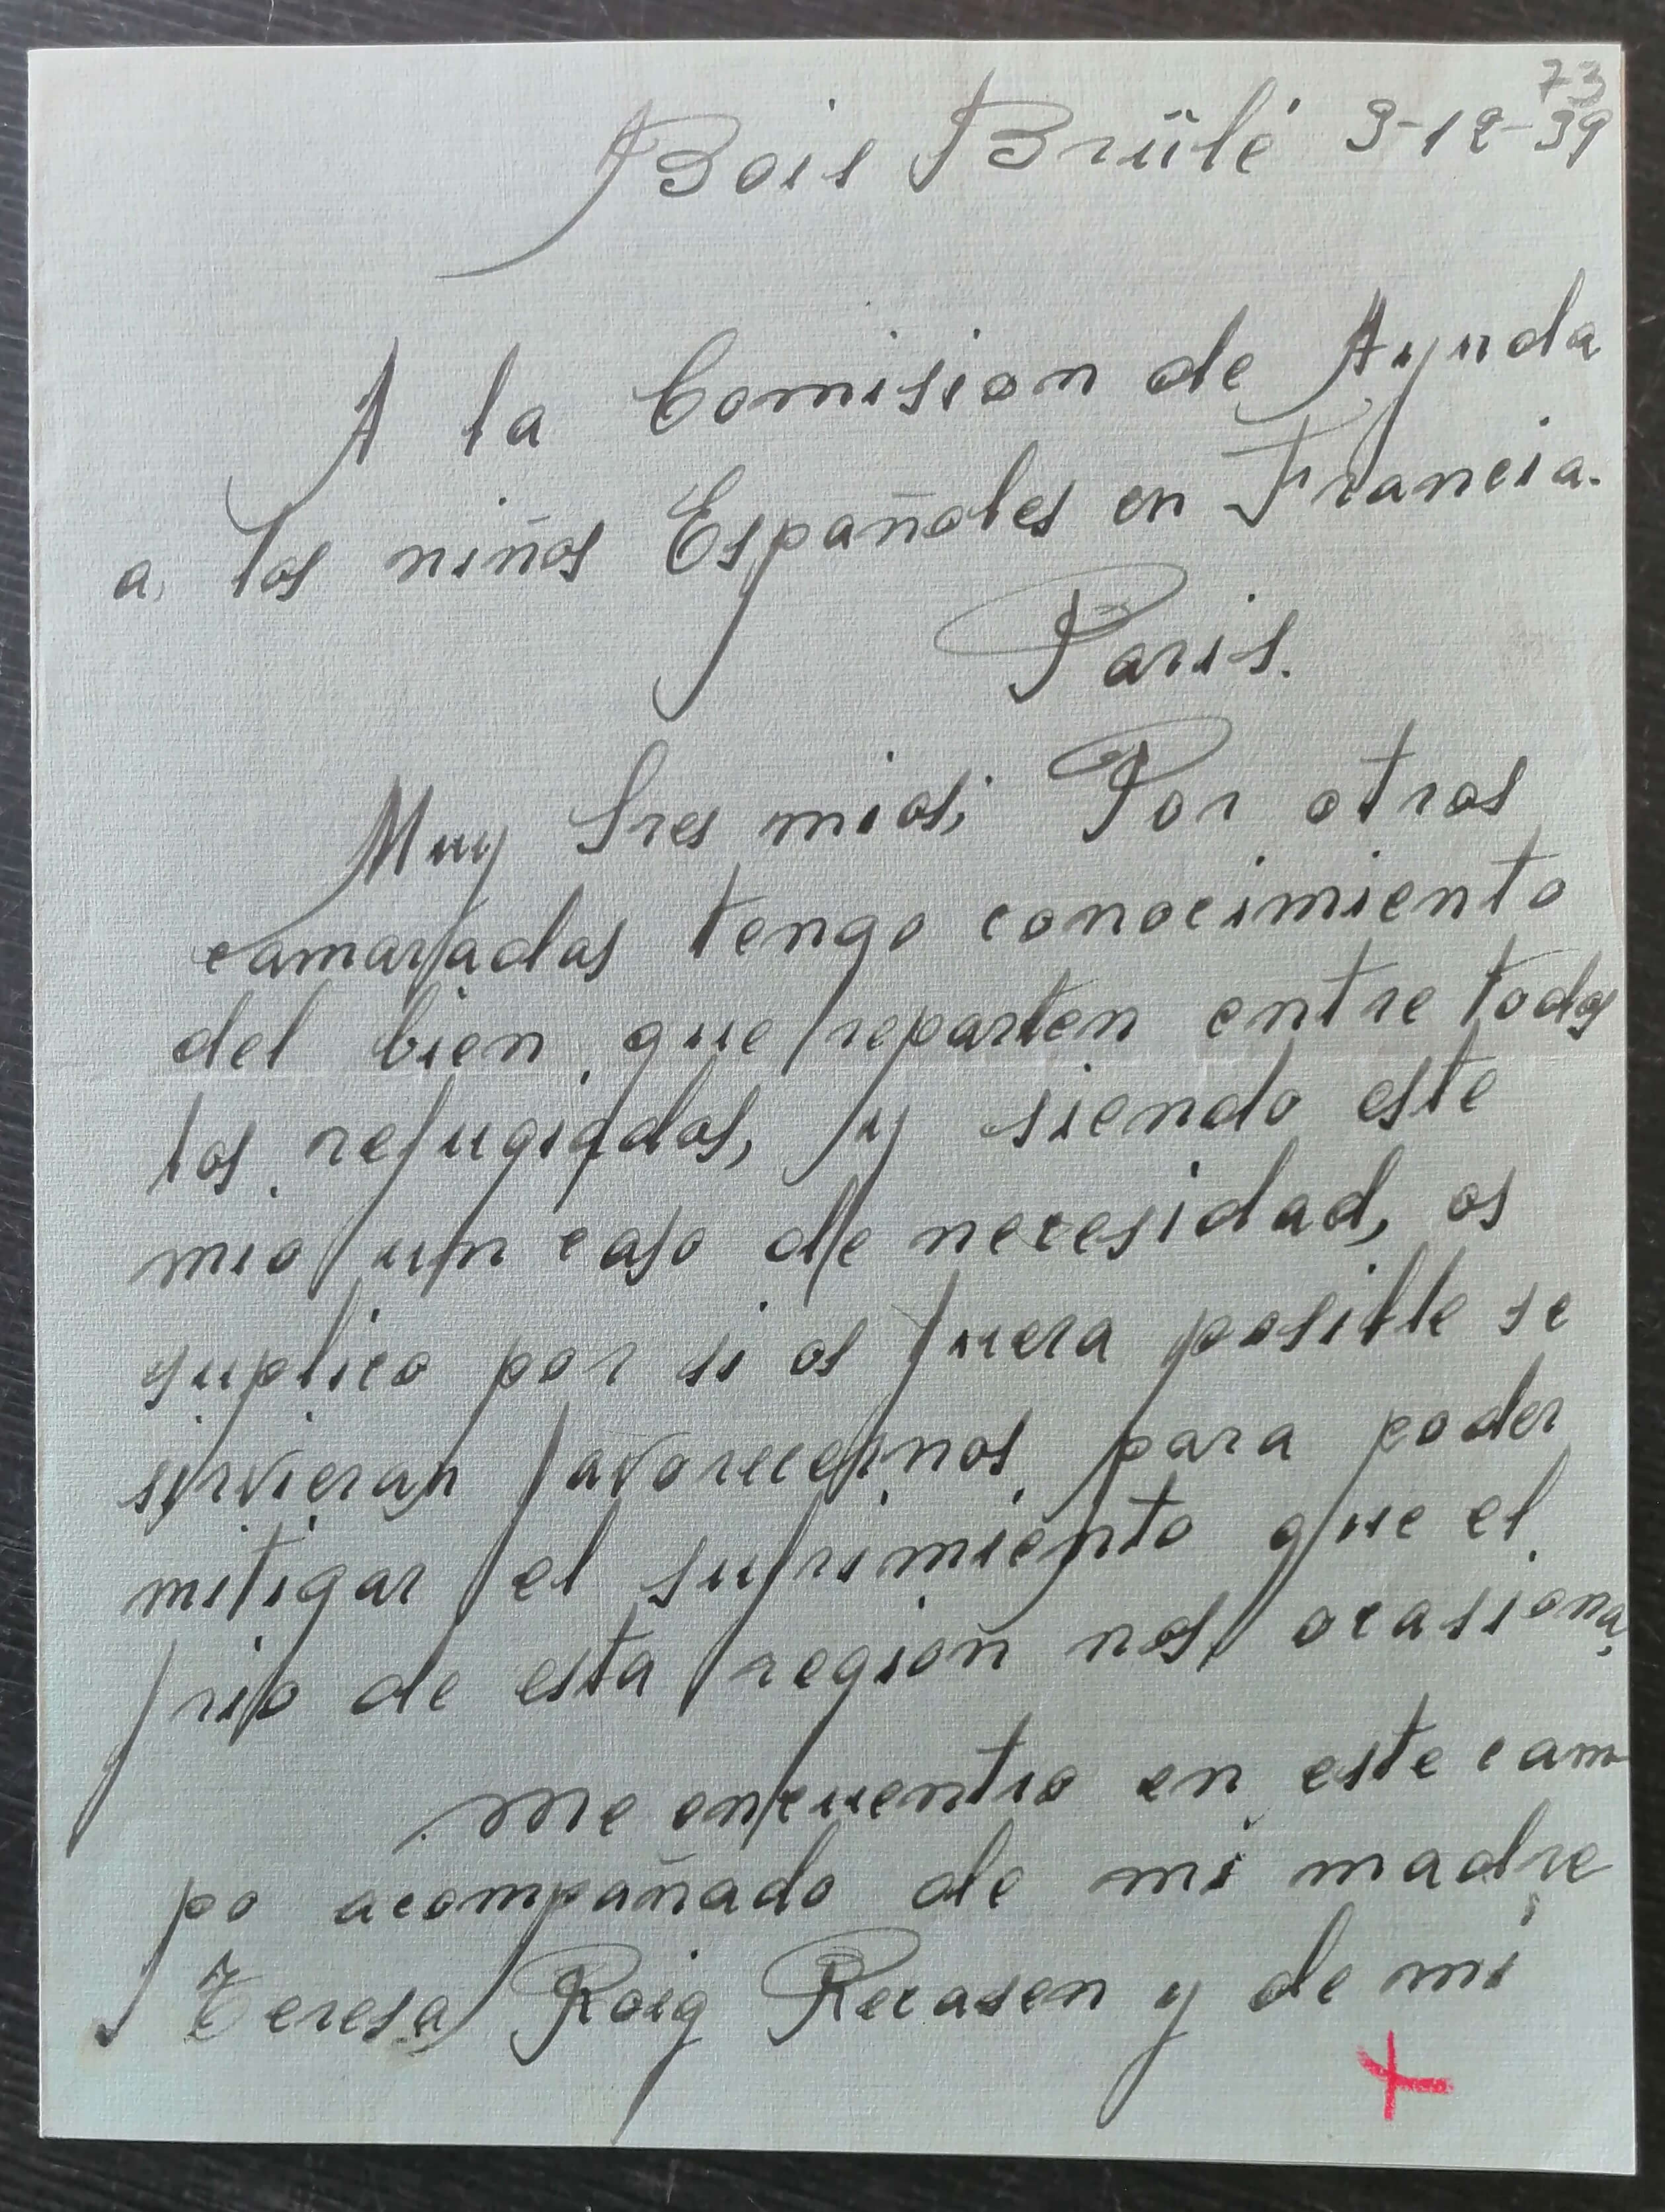 73
Bois Brûlé 3-12-39
A la Comision de Ayuda
a los niños Españoles en Francia.
Paris.
Muy Sres mios; Por otros
camaradas tengo conocimiento
del bien que reparten entre todos
los refugiados, y siendo este
mio un caso de necesidad, os
suplico por si os fuera posible se
sirvieran favorecernos para poder
mitigar el sufrimiento que el
frio de esta región nos ocasiona,
Me encuentro en este cam
po acompañado de mi madre
Teresa Roig Recasen y de mi